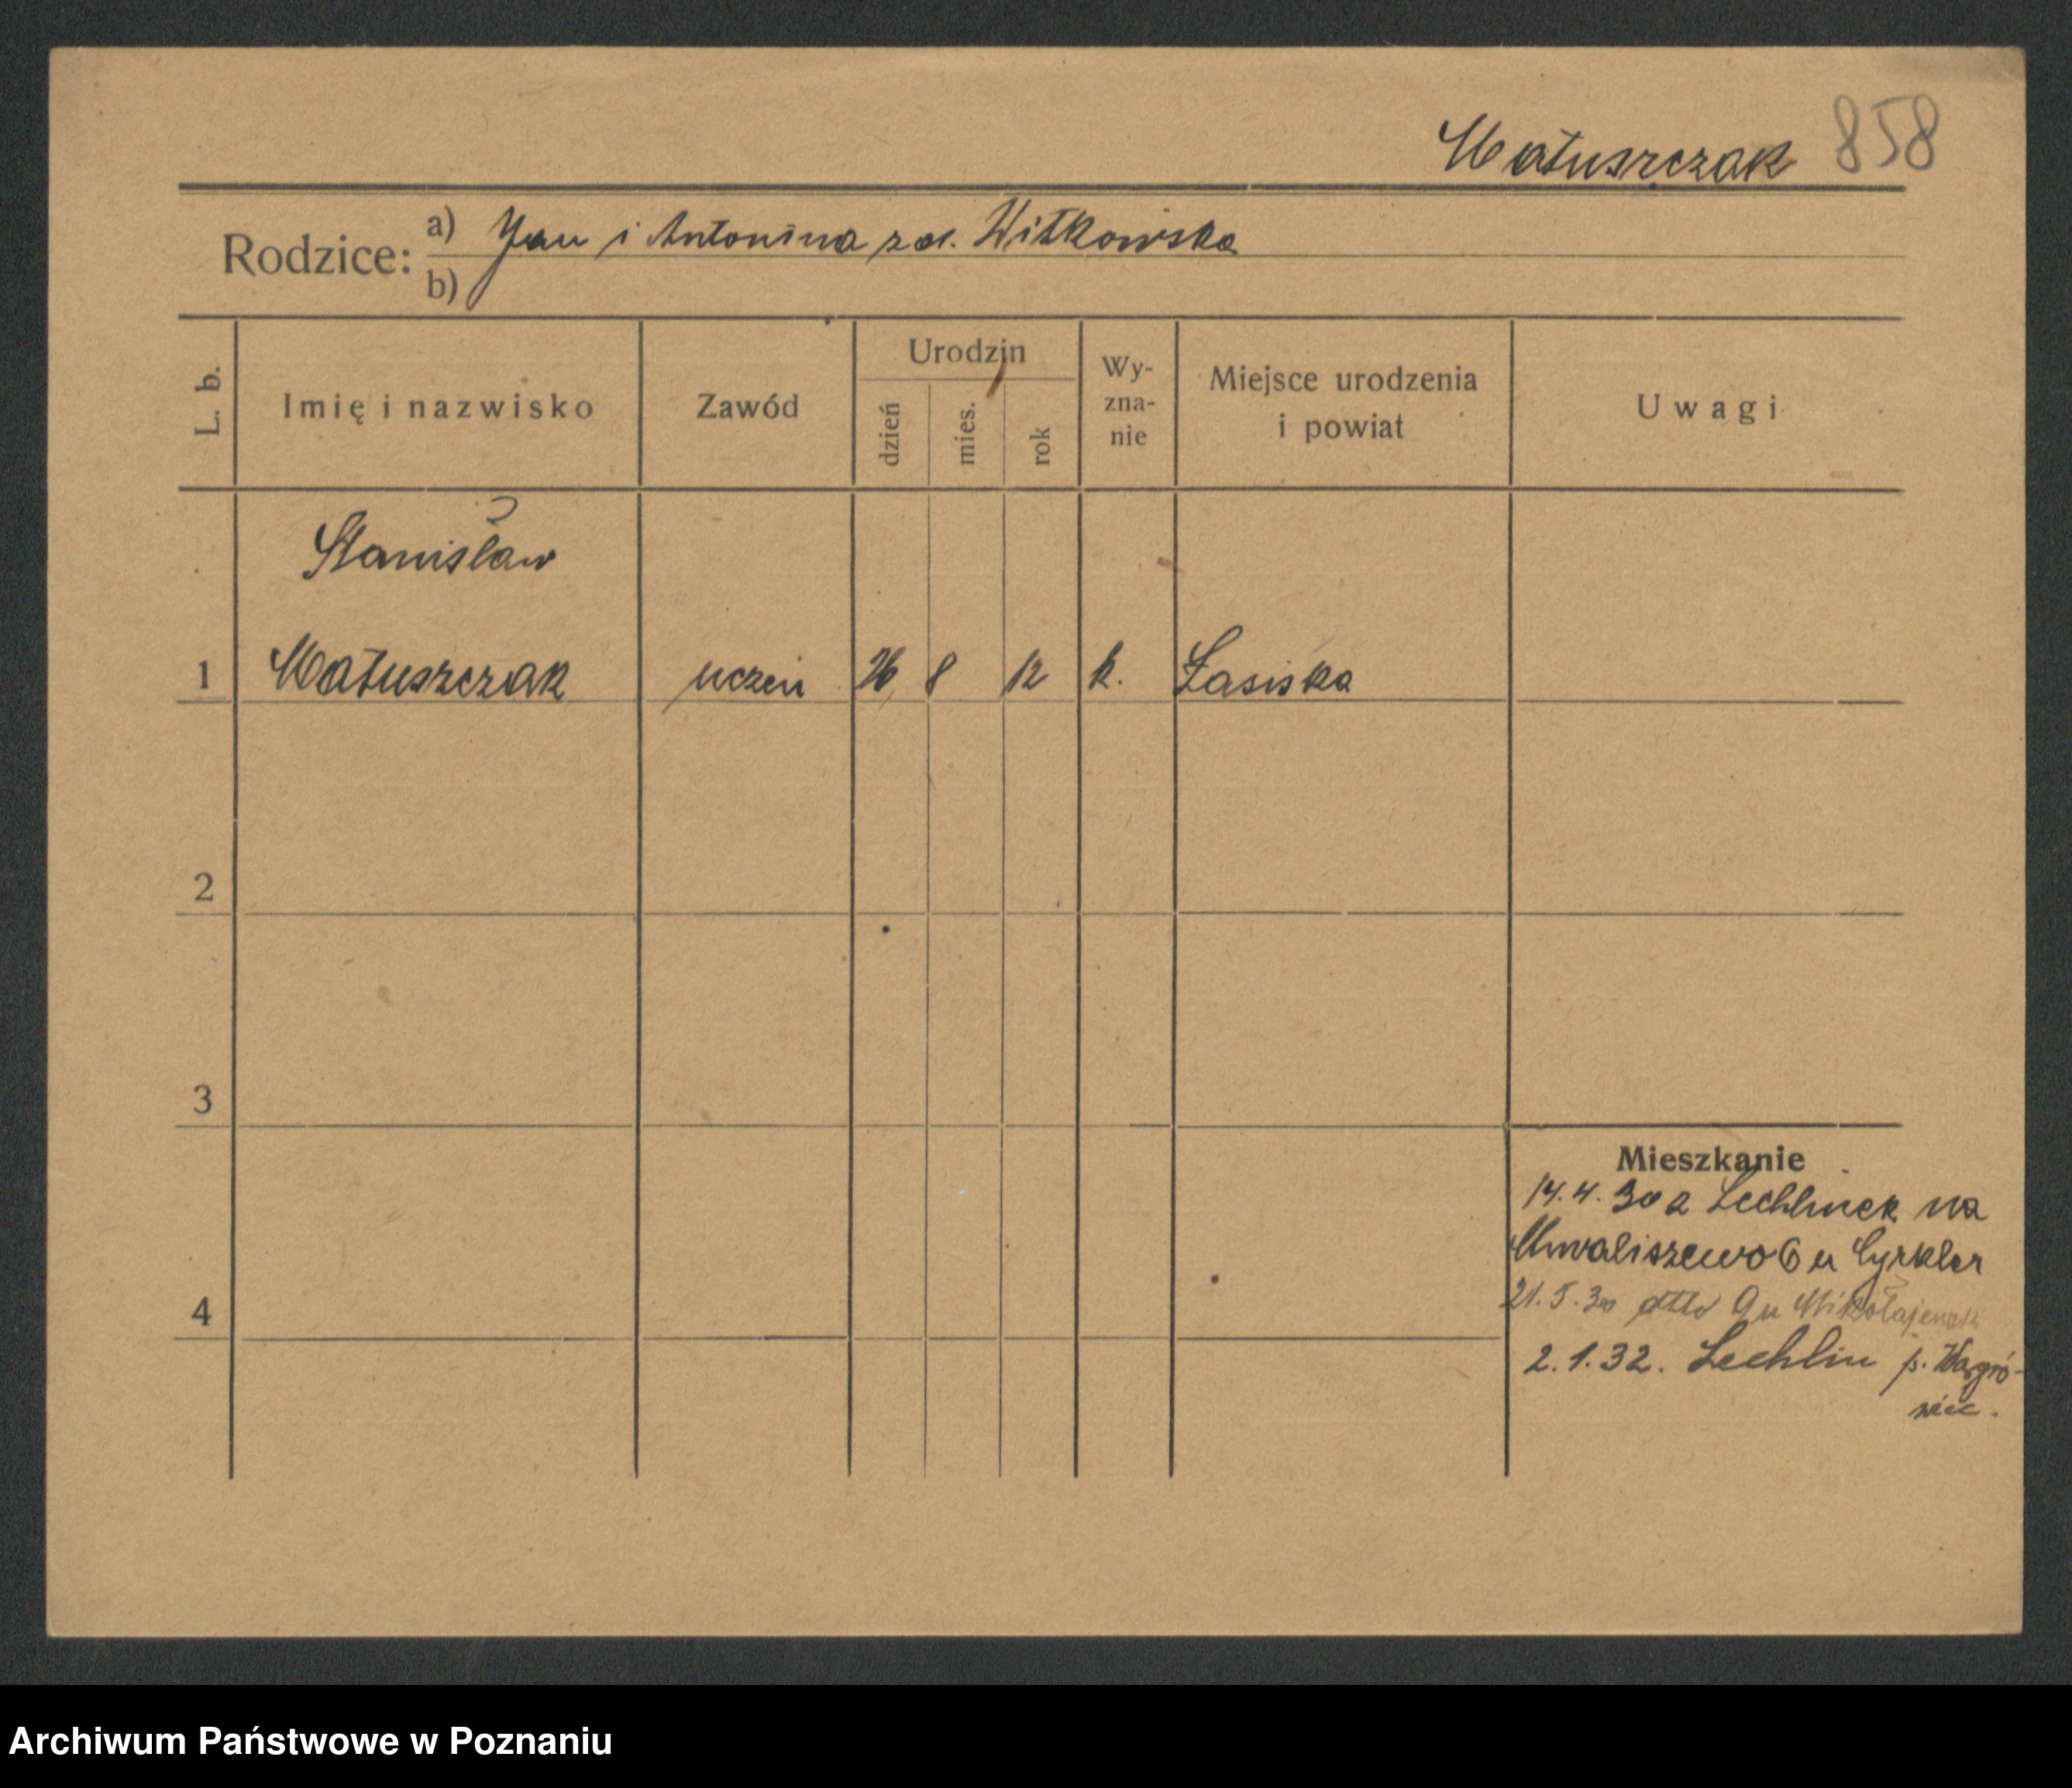 Matuszczak 858
Rodzice: a) Jan i Antonina zd. Witkowska
b)
L. b.
Imię i nazwisko
Zawód
Urodzin
dzień
mies.
rok
Wy-
zna-
nie
Miejsce urodzenia
i powiat
Uwagi
Stanisław
1 Matuszczak uczeń 26 8 12 k. Łasiska
2
3
Mieszkanie
14.4.30 z Lechlinek na
Chwaliszewo 6 u Cyrkler
21.5.30 dtto 9 u Mikołajewski
4
2.1.32. Lechlin p. Wągró-
wiec.
Archiwum Państwowe w Poznaniu